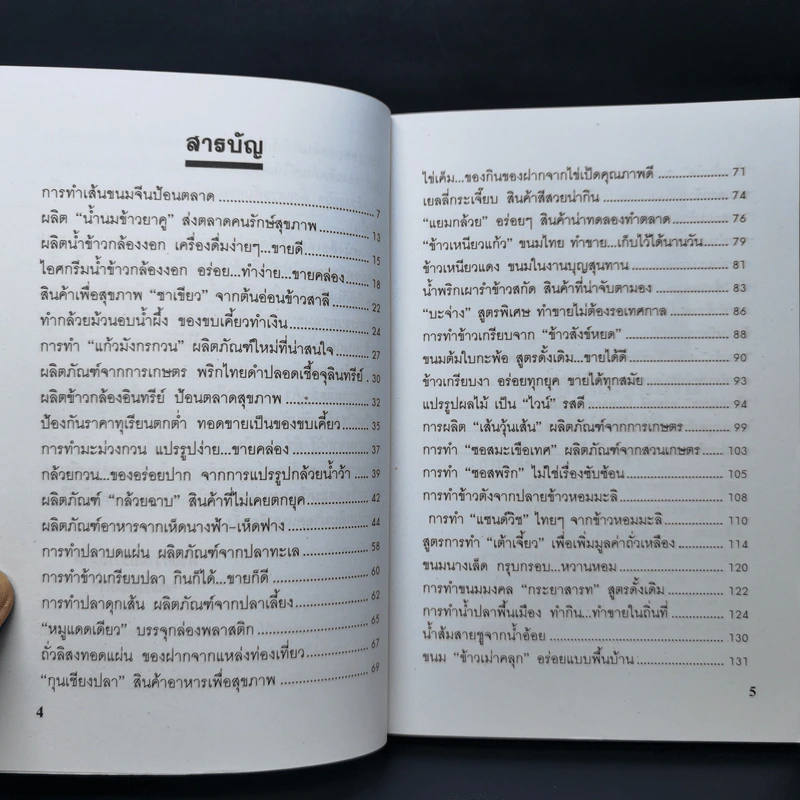 สารบัญ
การทำเส้นขนมจีนป้อนตลาด ........ 7
ผลิต "น้ำนมข้าวยาคู" ส่งตลาดคนรักษ์สุขภาพ ........ 13
ผลิตน้ำข้าวกล้องงอก เครื่องดื่มง่ายๆ...ขายดี ........ 15
ไอศกรีมน้ำข้าวกล้องงอก อร่อย...ทำง่าย...ขายคล่อง ........ 18
สินค้าเพื่อสุขภาพ "ชาเขียว" จากต้นอ่อนข้าวสาลี ........ 22
ทำกล้วยม้วนอบน้ำผึ้ง ของขบเคี้ยวทำเงิน ........ 24
การทำ "แก้วมังกรกวน" ผลิตภัณฑ์ใหม่ที่น่าสนใจ ........ 27
ผลิตภัณฑ์จากการเกษตร พริกไทยดำปลอดเชื้อจุลินทรีย์ . 30
ผลิตข้าวกล้องอินทรีย์ ป้อนตลาดสุขภาพ ........ 32
ป้องกันราคาทุเรียนตกต่ำ ทอดขายเป็นของขบเคี้ยว ........ 35
การทำมะม่วงกวน แปรรูปง่าย...ขายคล่อง ........ 37
กล้วยกวน...ของอร่อยปาก จากการแปรรูปกล้วยน้ำว้า ........ 39
ผลิตภัณฑ์ "กล้วยฉาบ" สินค้าที่ไม่เคยตกยุค ........ 42
ผลิตภัณฑ์อาหารจากเห็ดนางฟ้า-เห็ดฟาง ........ 44
การทำปลาบดแผ่น ผลิตภัณฑ์จากปลาทะเล ........ 58
การทำข้าวเกรียบปลา กินก็ได้...ขายก็ดี ........ 60
การทำปลาดุกเส้น ผลิตภัณฑ์จากปลาเลี้ยง ........ 62
"หมูแดดเดียว" บรรจุกล่องพลาสติก ........ 65
ถั่วลิสงทอดแผ่น ของฝากจากแหล่งท่องเที่ยว ........ 67
"กุนเชียงปลา" สินค้าอาหารเพื่อสุขภาพ ........ 69
4
ไข่เค็ม...ของกินของฝากจากไข่เป็ดคุณภาพดี ........ 71
เยลลี่กระเจี๊ยบ สินค้าสีสวยน่ากิน ........ 74
"แยมกล้วย" อร่อยๆ สินค้าน่าทดลองทำตลาด ........ 76
"ข้าวเหนียวแก้ว" ขนมไทย ทำขาย...เก็บไว้ได้นานวัน ........ 79
ข้าวเหนียวแดง ขนมในงานบุญสุนทาน ........ 81
น้ำพริกเผารำข้าวสกัด สินค้าที่น่าจับตามอง ........ 83
"บะจ่าง" สูตรพิเศษ ทำขายไม่ต้องรอเทศกาล ........ 86
การทำข้าวเกรียบจาก "ข้าวสังข์หยด" ........ 88
ขนมต้มใบกะพ้อ สูตรดั้งเดิม...ขายได้ดี ........ 90
ข้าวเกรียบงา อร่อยทุกยุค ขายได้ทุกสมัย ........ 93
แปรรูปผลไม้ เป็น "ไวน์" รสดี ........ 94
การผลิต "เส้นวุ้นเส้น" ผลิตภัณฑ์จากการเกษตร ........ 99
การทำ "ซอสมะเขือเทศ" ผลิตภัณฑ์จากสวนเกษตร ........ 103
การทำ "ซอสพริก" ไม่ใช่เรื่องซับซ้อน ........ 105
การทำข้าวตังจากปลายข้าวหอมมะลิ ........ 108
การทำ "แซนด์วิช" ไทยๆ จากข้าวหอมมะลิ ........ 110
สูตรการทำ "เต้าเจี้ยว" เพื่อเพิ่มมูลค่าถั่วเหลือง ........ 114
ขนมนางเล็ด กรุบกรอบ...หวานหอม ........ 120
การทำขนมมงคล "กระยาสารท" สูตรดั้งเดิม ........ 122
การทำน้ำปลาพื้นเมือง ทำกิน...ทำขายในถิ่นที่ ........ 124
น้ำส้มสายชูจากน้ำอ้อย ........ 130
ขนม "ข้าวเม่าคลุก" อร่อยแบบพื้นบ้าน ........ 131
5